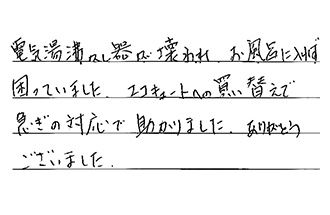 電気湯沸し器が壊われ お風呂に入れず
困っていました。エコキュートへの買い替えで
急ぎの対応で助かりました。ありがとう
ございました。